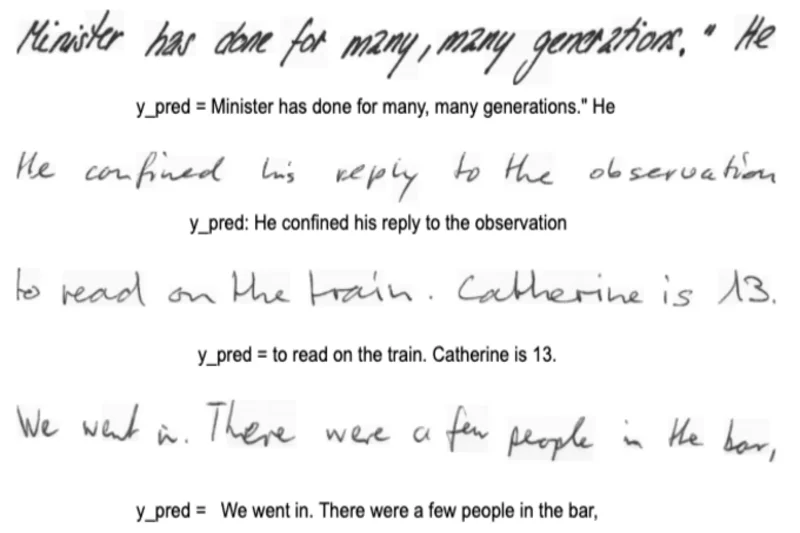 Minister has done for many, many generations." He
y_pred = Minister has done for many, many generations." He
He confined his reply to the observation
y_pred: He confined his reply to the observation
to read on the train. Catherine is 13.
y_pred = to read on the train. Catherine is 13.
We went in. There were a few people in the bar,
y_pred = We went in. There were a few people in the bar,